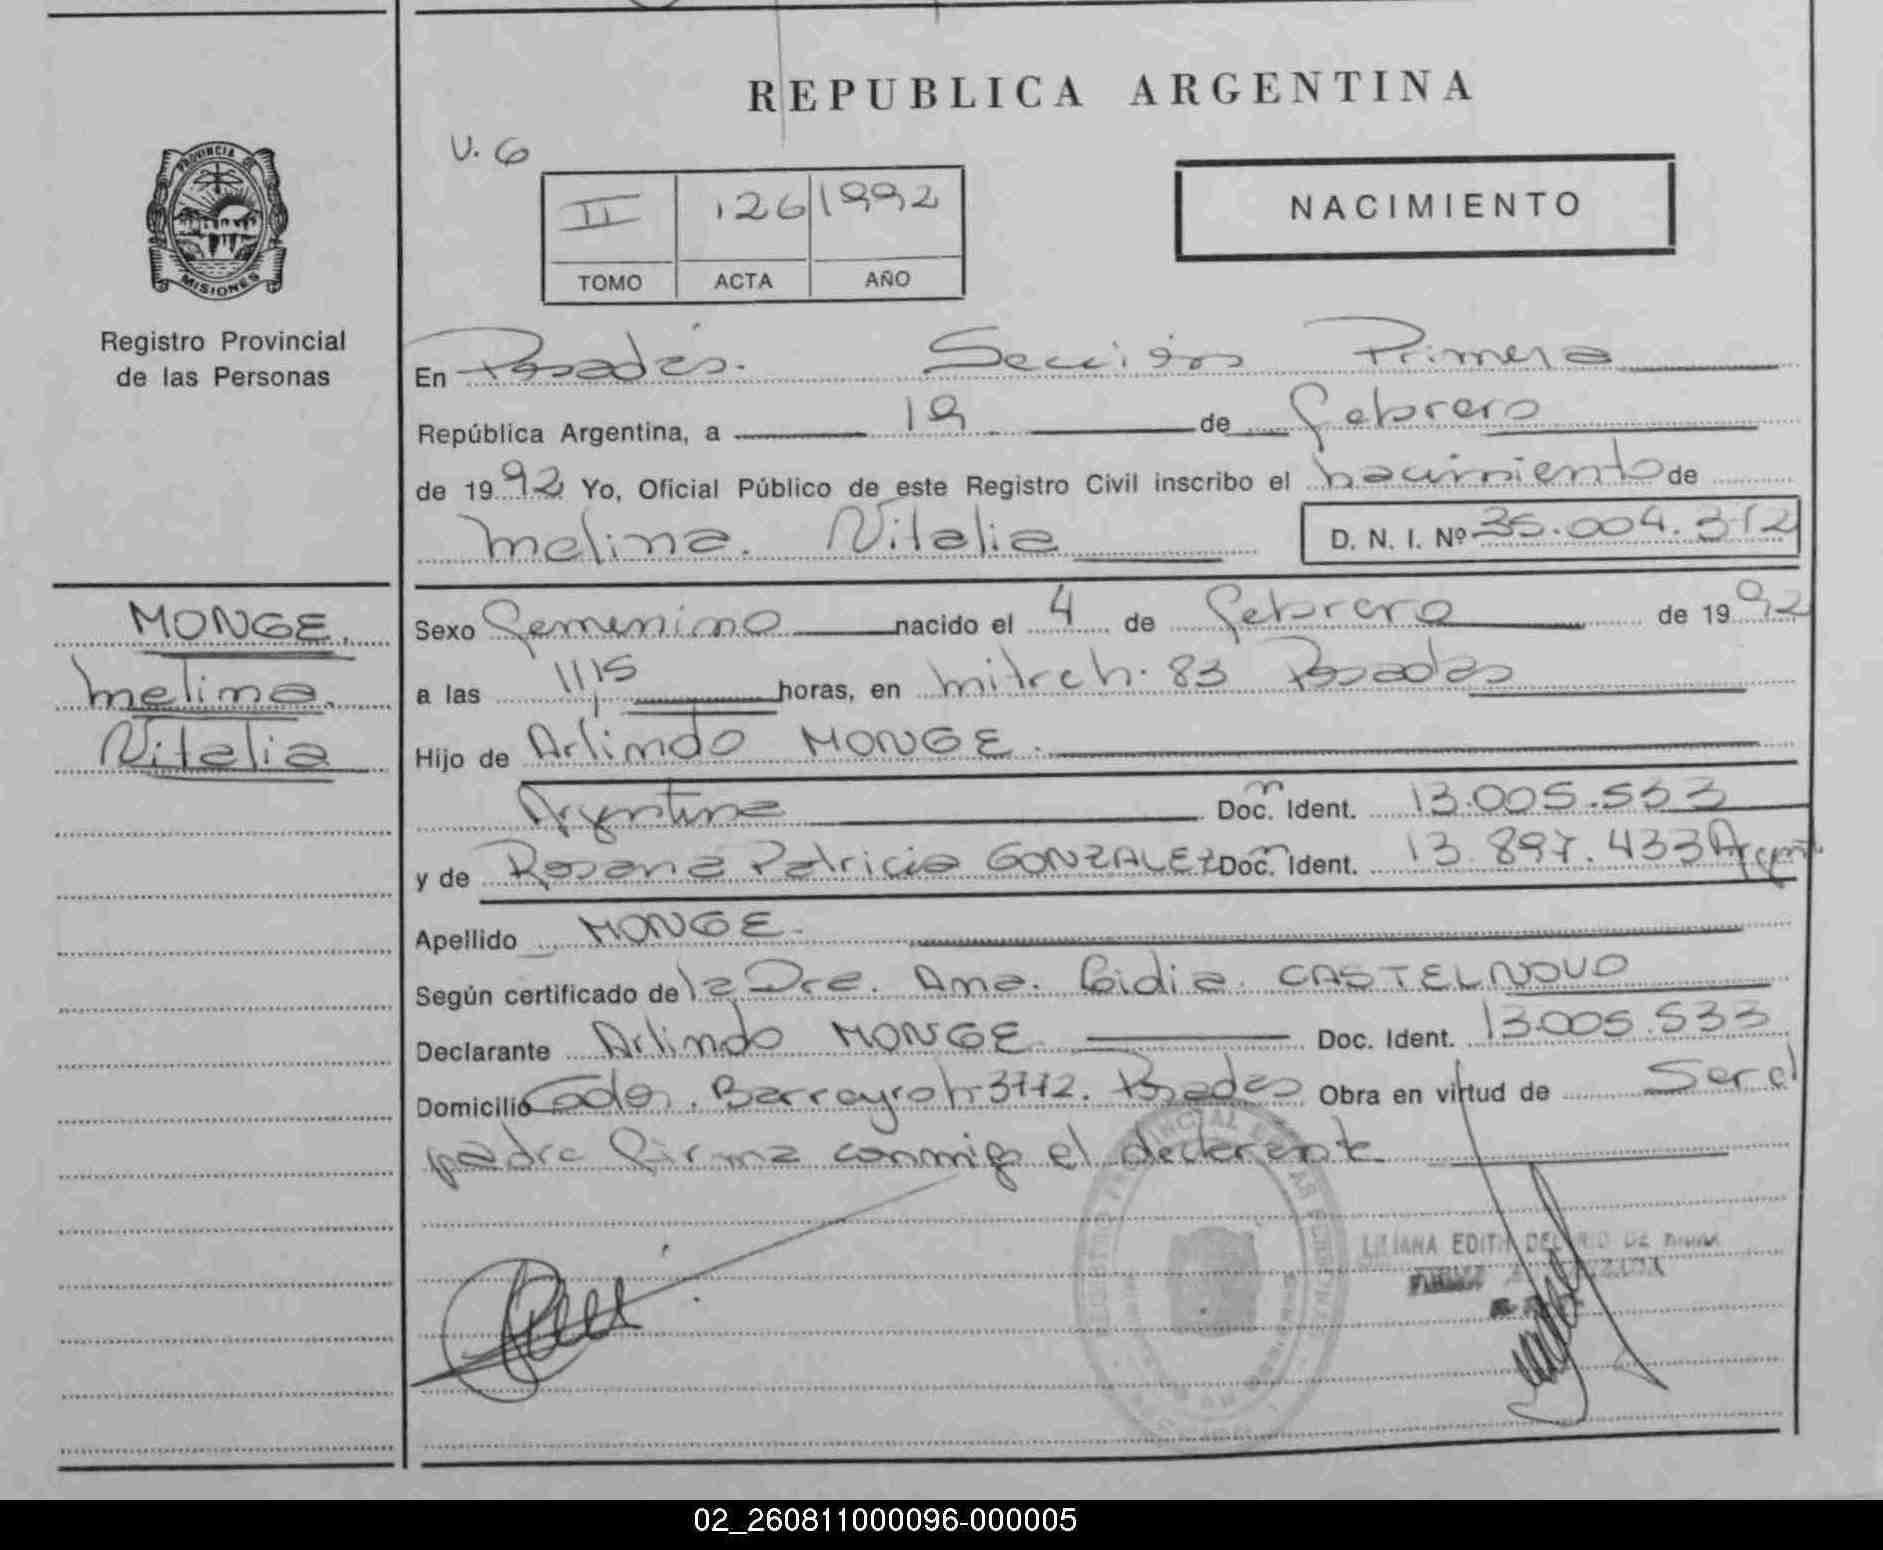 REPUBLICA ARGENTINA
V. 6
II 126 1992
TOMO ACTA AÑO
NACIMIENTO
PROVINCIA DE
MISIONES
Registro Provincial
de las Personas
En Posadas. Sección Primera
República Argentina, a 19 de febrero
de 1992 Yo, Oficial Público de este Registro Civil inscribo el nacimiento de
Melina. Vitalia D. N. I. Nº 35.004.312
MONGE.
Melina.
Vitalia
Sexo femenino nacido el 4 de febrero de 1992
a las 1115 horas, en mitre h. 83 Posadas
Hijo de Arlindo MONGE.
Argentina Doc. Ident. 13.005.533
y de Rosana Patricia GONZALEZ Doc. Ident. 13.897.433 Argent
Apellido MONGE.
Según certificado de la Dra. Ana. Lidia. CASTELNOVO
Declarante Arlindo MONGE Doc. Ident. 13.005.533
Domicilio Posadas Obra en virtud de Ser el
padre firma conmigo el declarante
LILIANA EDITH DEL RIO DE
02_260811000096-000005